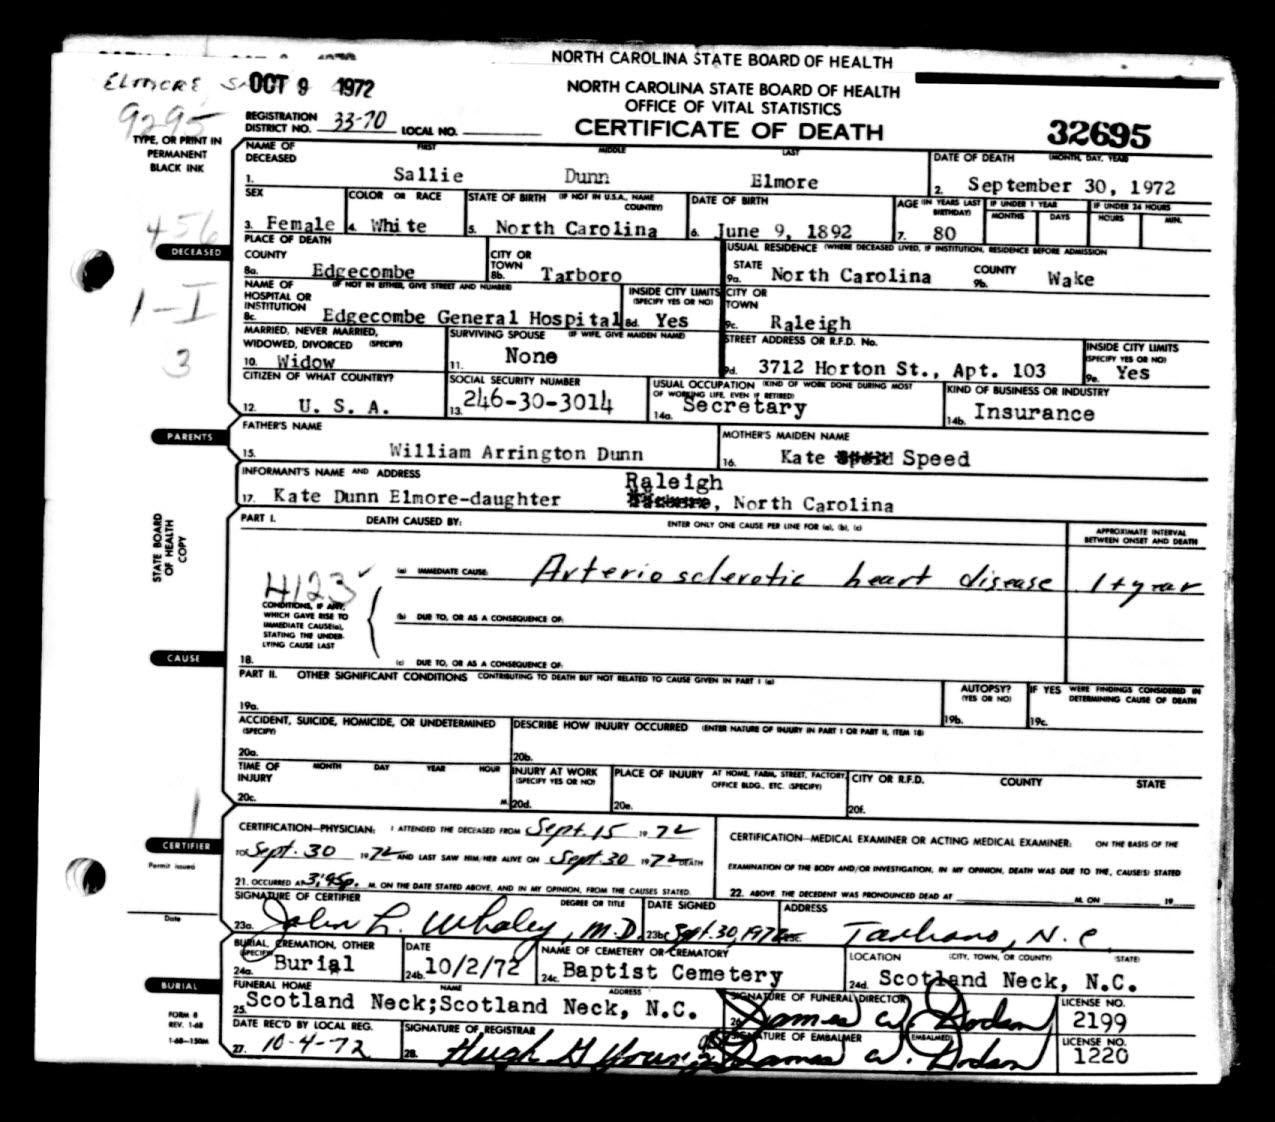 NORTH CAROLINA STATE BOARD OF HEALTH
ELMORE OCT 9 1972
NORTH CAROLINA STATE BOARD OF HEALTH
OFFICE OF VITAL STATISTICS
9295
REGISTRATION DISTRICT NO. 33-70 LOCAL NO.
CERTIFICATE OF DEATH
32695
TYPE, OR PRINT IN
PERMANENT
BLACK INK
NAME OF DECEASED FIRST MIDDLE LAST
1. Sallie Dunn Elmore
DATE OF DEATH (MONTH, DAY, YEAR)
2. September 30, 1972
456
SEX
3. Female
COLOR OR RACE
4. White
STATE OF BIRTH (IF NOT IN U.S.A., NAME COUNTRY)
5. North Carolina
DATE OF BIRTH
6. June 9, 1892
AGE (IN YEARS LAST BIRTHDAY)
7. 80
IF UNDER 1 YEAR
MONTHS DAYS
IF UNDER 24 HOURS
HOURS MIN.
DECEASED
PLACE OF DEATH
COUNTY
8a. Edgecombe
CITY OR TOWN
8b. Tarboro
USUAL RESIDENCE (WHERE DECEASED LIVED, IF INSTITUTION, RESIDENCE BEFORE ADMISSION
STATE
9a. North Carolina
COUNTY
9b. Wake
1-I
NAME OF HOSPITAL OR INSTITUTION (IF NOT IN EITHER, GIVE STREET AND NUMBER)
8c. Edgecombe General Hospital
INSIDE CITY LIMITS (SPECIFY YES OR NO)
8d. Yes
CITY OR TOWN
9c. Raleigh
3
MARRIED, NEVER MARRIED, WIDOWED, DIVORCED (SPECIFY)
10. Widow
SURVIVING SPOUSE (IF WIFE, GIVE MAIDEN NAME)
11. None
STREET ADDRESS OR R.F.D. No.
9d. 3712 Horton St., Apt. 103
INSIDE CITY LIMITS (SPECIFY YES OR NO)
9e. Yes
CITIZEN OF WHAT COUNTRY?
12. U. S. A.
SOCIAL SECURITY NUMBER
13. 246-30-3014
USUAL OCCUPATION (KIND OF WORK DONE DURING MOST OF WORKING LIFE, EVEN IF RETIRED)
14a. Secretary
KIND OF BUSINESS OR INDUSTRY
14b. Insurance
PARENTS
FATHER'S NAME
15. William Arrington Dunn
MOTHER'S MAIDEN NAME
16. Kate Speed
INFORMANT'S NAME AND ADDRESS
17. Kate Dunn Elmore-daughter Raleigh, North Carolina
STATE BOARD
OF HEALTH
COPY
PART I. DEATH CAUSED BY: ENTER ONLY ONE CAUSE PER LINE FOR (a), (b), (c)
APPROXIMATE INTERVAL BETWEEN ONSET AND DEATH
4123
(a) IMMEDIATE CAUSE: Arteriosclerotic heart disease 1+ year
CONDITIONS, IF ANY,
WHICH GAVE RISE TO
IMMEDIATE CAUSE(a),
STATING THE UNDER-
LYING CAUSE LAST
(b) DUE TO, OR AS A CONSEQUENCE OF:
CAUSE
18. (c) DUE TO, OR AS A CONSEQUENCE OF:
PART II. OTHER SIGNIFICANT CONDITIONS CONTRIBUTING TO DEATH BUT NOT RELATED TO CAUSE GIVEN IN PART I (a)
19a.
AUTOPSY? (YES OR NO)
19b.
IF YES WERE FINDINGS CONSIDERED IN DETERMINING CAUSE OF DEATH
19c.
ACCIDENT, SUICIDE, HOMICIDE, OR UNDETERMINED (SPECIFY)
20a.
DESCRIBE HOW INJURY OCCURRED (ENTER NATURE OF INJURY IN PART I OR PART II, ITEM 18)
20b.
TIME OF INJURY MONTH DAY YEAR HOUR
20c. M.
INJURY AT WORK (SPECIFY YES OR NO)
20d.
PLACE OF INJURY AT HOME, FARM, STREET, FACTORY, OFFICE BLDG., ETC. (SPECIFY)
20e.
CITY OR R.F.D. COUNTY STATE
20f.
CERTIFIER
Permit issued
Date
CERTIFICATION—PHYSICIAN: I ATTENDED THE DECEASED FROM Sept. 15 1972
TO Sept. 30 1972 AND LAST SAW HIM/HER ALIVE ON Sept 30 1972 DEATH
21. OCCURRED AT 3:45p. M. ON THE DATE STATED ABOVE, AND IN MY OPINION, FROM THE CAUSES STATED.
CERTIFICATION—MEDICAL EXAMINER OR ACTING MEDICAL EXAMINER: ON THE BASIS OF THE
EXAMINATION OF THE BODY AND/OR INVESTIGATION, IN MY OPINION, DEATH WAS DUE TO THE, CAUSE(S) STATED
22. ABOVE. THE DECEDENT WAS PRONOUNCED DEAD AT M. ON 19
SIGNATURE OF CERTIFIER DEGREE OR TITLE
23a. John L. Whaley, M.D.
DATE SIGNED
23b. Sept. 30, 1972
ADDRESS
23c. Tarboro, N.C.
BURIAL, CREMATION, OTHER (SPECIFY)
24a. Burial
DATE
24b. 10/2/72
NAME OF CEMETERY OR CREMATORY
24c. Baptist Cemetery
LOCATION (CITY, TOWN, OR COUNTY) (STATE)
24d. Scotland Neck, N.C.
BURIAL
FUNERAL HOME NAME ADDRESS
25. Scotland Neck; Scotland Neck, N.C.
SIGNATURE OF FUNERAL DIRECTOR
26. James W. Dodson
LICENSE NO.
2199
FORM 8
REV. 1-68
1-68—150M
DATE REC'D BY LOCAL REG.
27. 10-4-72
SIGNATURE OF REGISTRAR
28. Hugh H Young
SIGNATURE OF EMBALMER (IF EMBALMED)
James W. Dodson
LICENSE NO.
1220